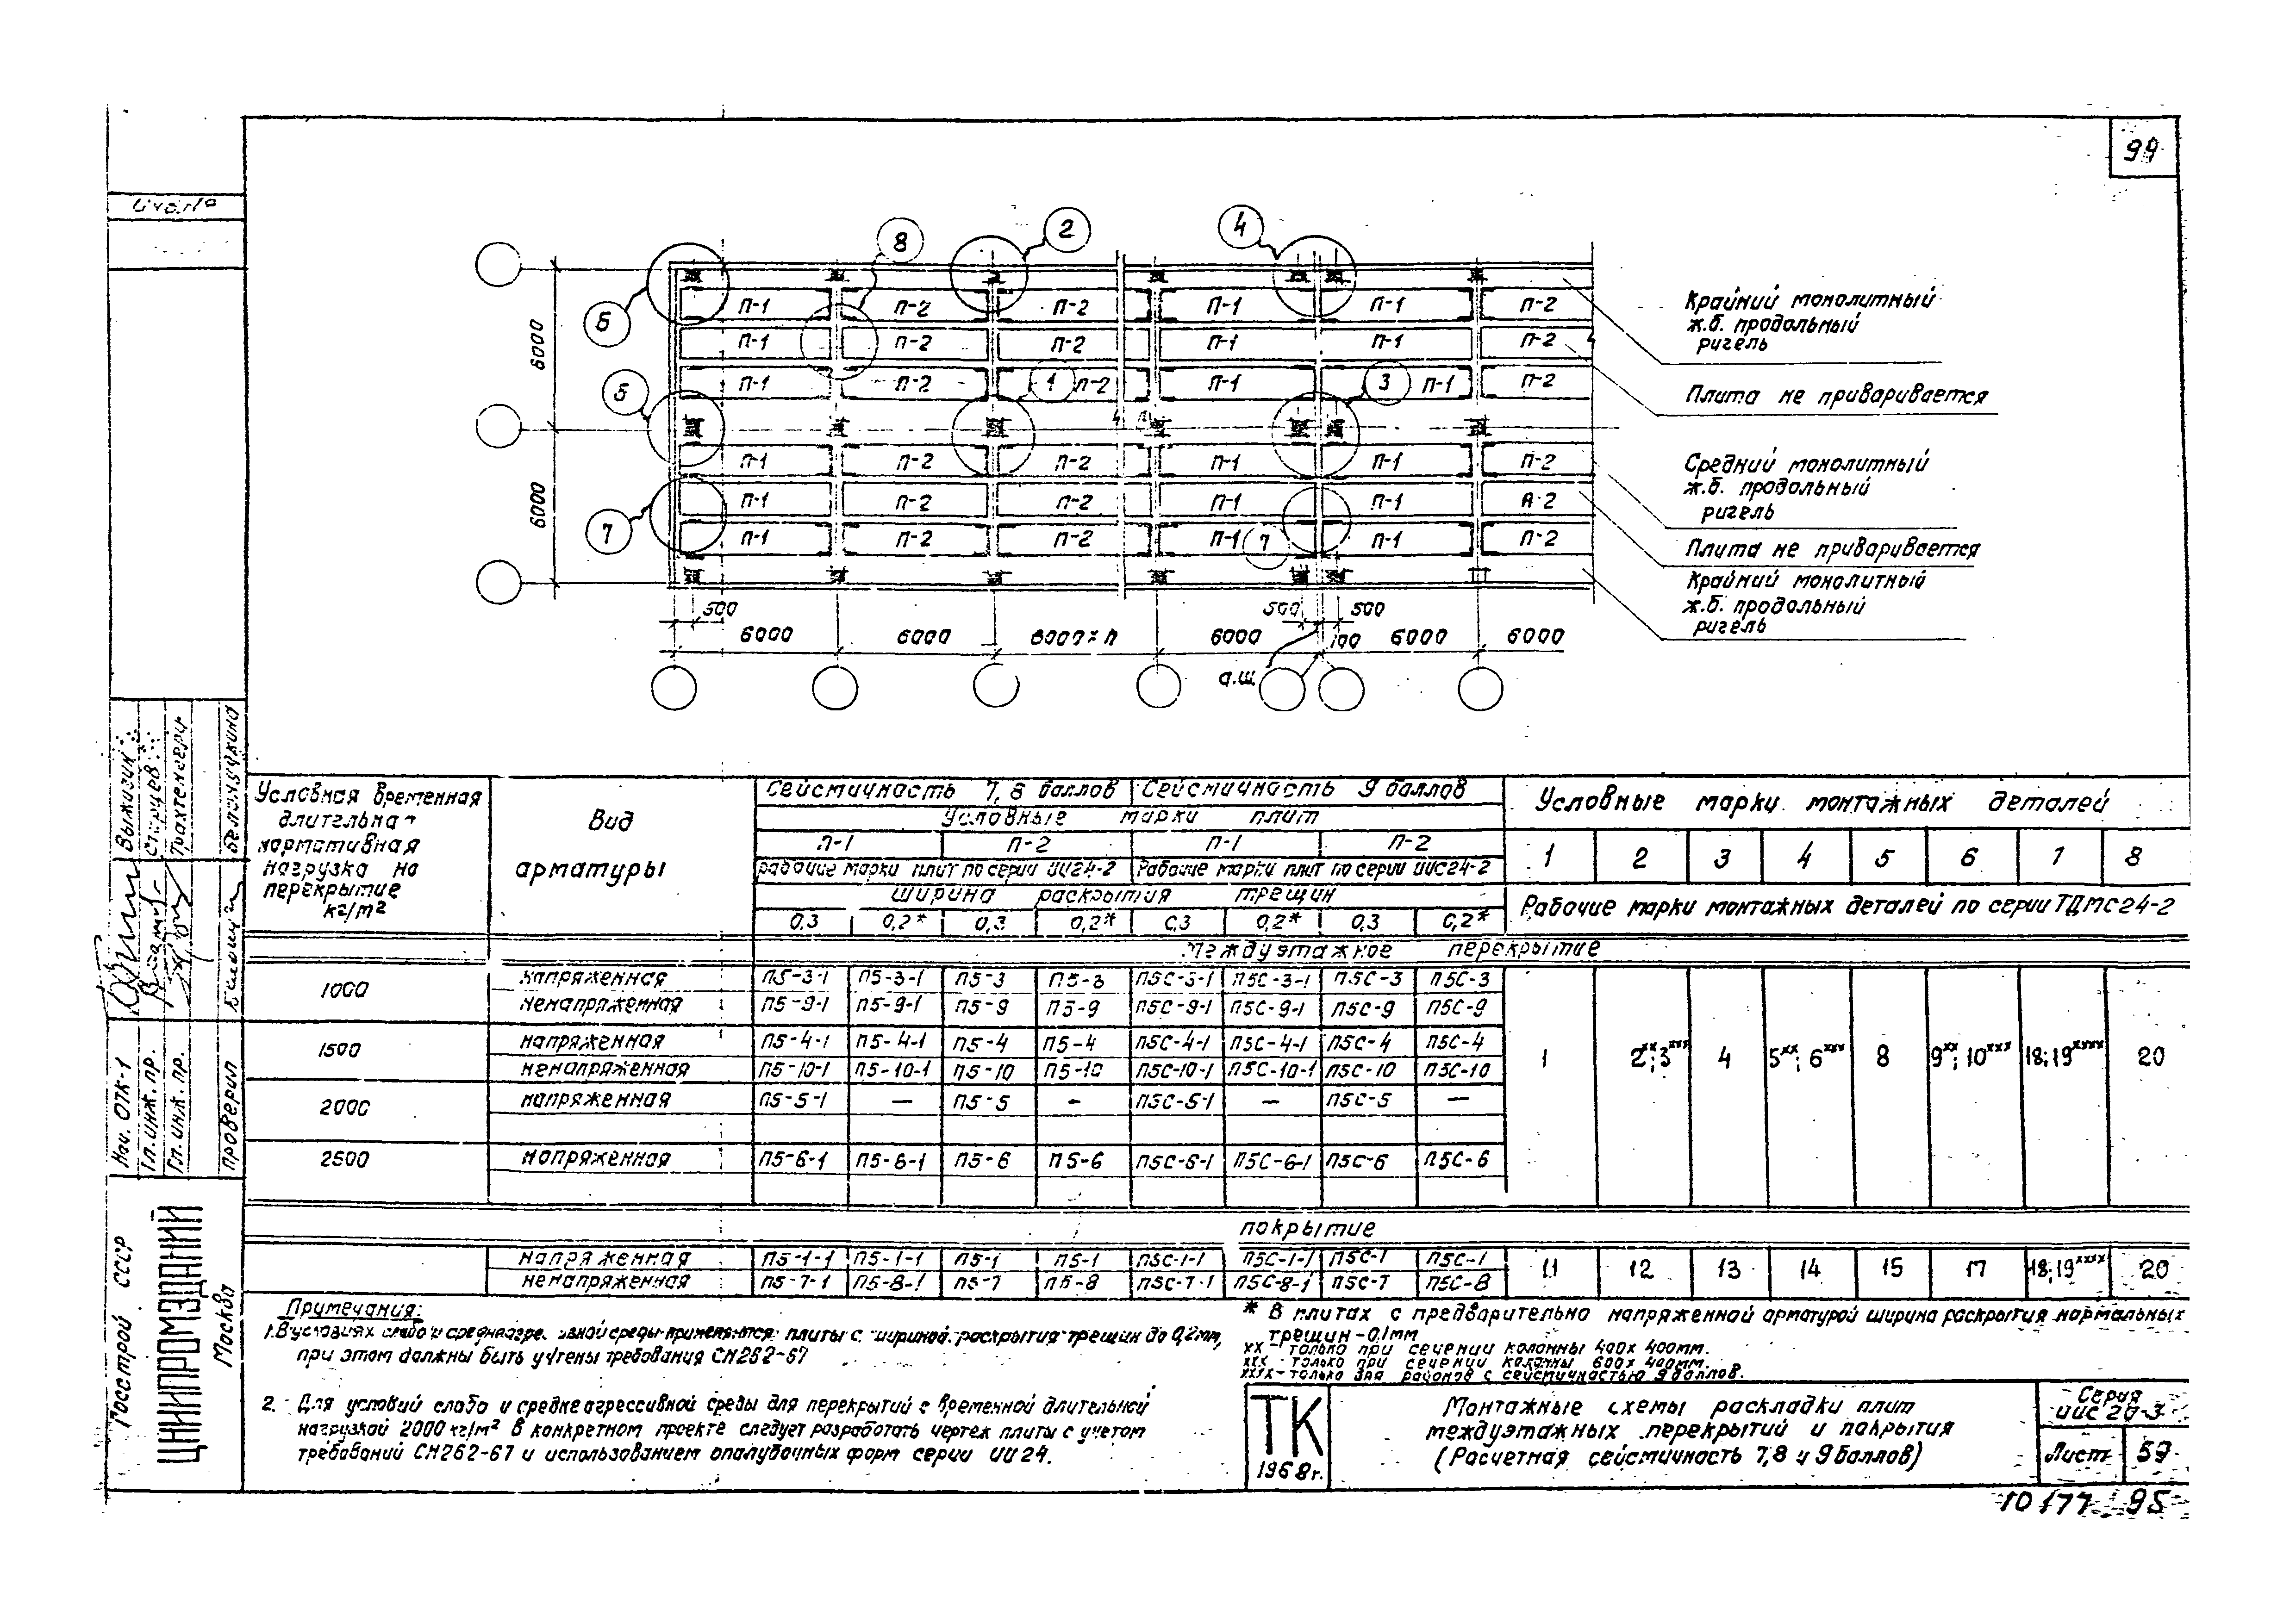 99
8
2
4
6
5
7
1
3
7
П-1 П-2 П-2 П-1 П-1 П-2
П-1 П-2 П-2 П-1 П-1 П-2
П-1 П-2 П-2 П-1 П-1 П-2
П-1 П-2 П-2 П-1 П-1 П-2
П-1 П-2 П-2 П-1 П-1 П-2
П-1 П-2 П-2 П-1 П-1 П-2
6000
6000
500 500 500
6000 6000 6000×n 6000 100 6000 6000
а.ш.
Крайний монолитный
ж.б. продольный
ригель
Плита не приваривается
Средний монолитный
ж.б. продольный
ригель
Плита не приваривается
Крайний монолитный
ж.б. продольный
ригель
Условная временная
длительная
нормативная
нагрузка на
перекрытие
кг/м²
Вид
арматуры
Сейсмичность 7, 8 баллов Сейсмичность 9 баллов
Условные марки плит
П-1 П-2 П-1 П-2
Рабочие марки плит по серии ИИ24-2 Рабочие марки плит по серии ИИС24-2
Ширина раскрытия трещин
0,3 0,2* 0,3 0,2* 0,3 0,2* 0,3 0,2*
Условные марки монтажных деталей
1 2 3 4 5 6 7 8
Рабочие марки монтажных деталей по серии ТДМС24-2
Междуэтажное перекрытие
1000 напряженная П5-3-1 П5-3-1 П5-3 П5-3 П5С-3-1 П5С-3-1 П5С-3 П5С-3
ненапряженная П5-9-1 П5-9-1 П5-9 П5-9 П5С-9-1 П5С-9-1 П5С-9 П5С-9
1500 напряженная П5-4-1 П5-4-1 П5-4 П5-4 П5С-4-1 П5С-4-1 П5С-4 П5С-4
ненапряженная П5-10-1 П5-10-1 П5-10 П5-10 П5С-10-1 П5С-10-1 П5С-10 П5С-10
1 2ˣˣ; 3ˣˣˣ 4 5ˣˣ; 6ˣˣˣ 8 9ˣˣ; 10ˣˣˣ 18; 19ˣˣˣˣ 20
2000 напряженная П5-5-1 — П5-5 — П5С-5-1 — П5С-5 —
2500 напряженная П5-6-1 П5-6-1 П5-6 П5-6 П5С-6-1 П5С-6-1 П5С-6 П5С-6
покрытие
напряженная П5-1-1 П5-1-1 П5-1 П5-1 П5С-1-1 П5С-1-1 П5С-1 П5С-1
ненапряженная П5-7-1 П5-8-1 П5-7 П5-8 П5С-7-1 П5С-8-1 П5С-7 П5С-8
11 12 13 14 15 17 18; 19ˣˣˣˣ 20
Примечания:
1. В условиях слабо и среднеагре. ивной среды применяются плиты с шириной раскрытия трещин до 0,2мм,
при этом должны быть учтены требования СН262-67
2. Для условий слабо и средне агрессивной среды для перекрытий с временной длительной
нагрузкой 2000 кг/м² в конкретном проекте следует разработать чертеж плиты с учетом
требований СН262-67 и использованием опалубочных форм серии ИИ24.
* В плитах с предварительно напряженной арматурой ширина раскрытия нормальных
трещин - 0,1мм
хх - только при сечении колонны 400х400мм.
ххх - только при сечении колонны 600х400мм.
хххх - только для районов с сейсмичностью 9 баллов.
ТК
1968г.
Монтажные схемы раскладки плит
междуэтажных перекрытий и покрытия
(Расчетная сейсмичность 7, 8 и 9 баллов)
Серия
ИИС 20-3
Лист 59
10177 95
Инв.№
Выжигин
Трахтенгерц
Нач. ОТК-1
Гл. инж. пр.
Гл. инж. пр.
проверил
Госстрой СССР
ЦНИИПРОМЗДАНИЙ
Москва